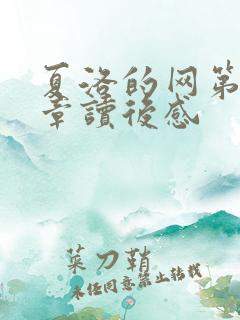 夏洛的网第
章讀後感
菜刀鞘
未经同意禁止转载